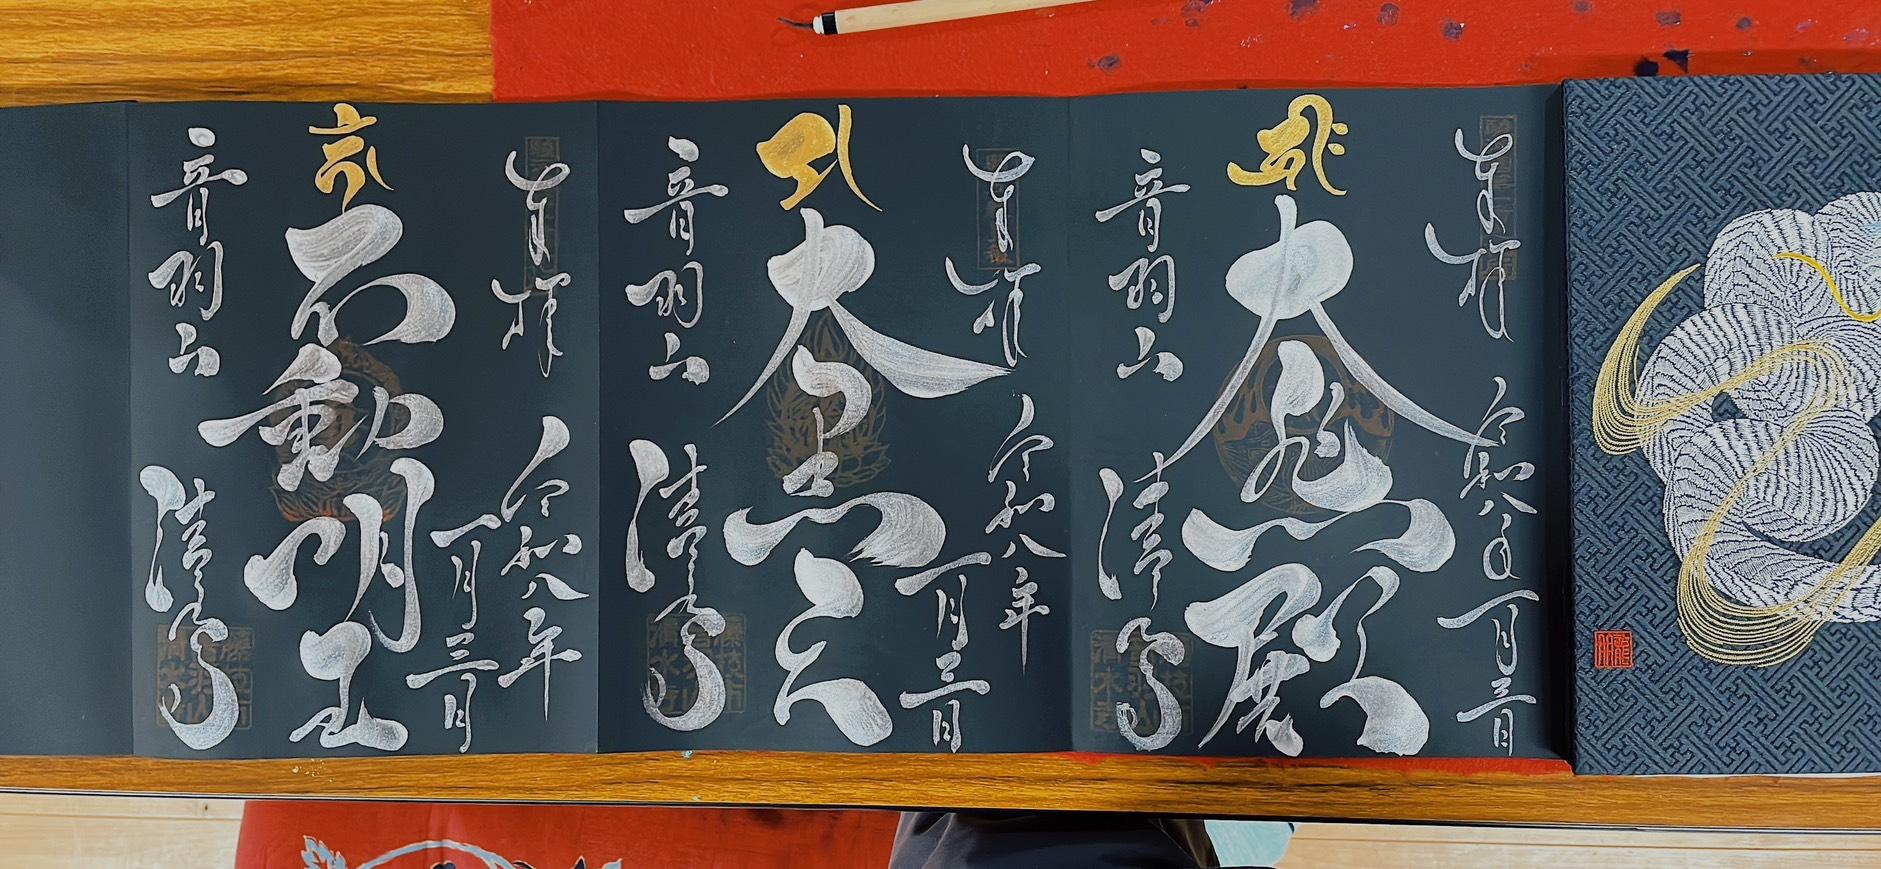 奉拝
令和八年一月三日
大悲殿
音羽山
清水寺
奉拝
令和八年
一月三日
大黒天
音羽山
清水寺
奉拝
令和八年
一月三日
不動明王
音羽山
清水寺